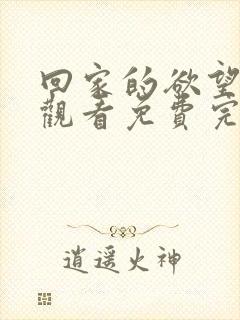 回家的欲望
觀看免費完
逍遥火神